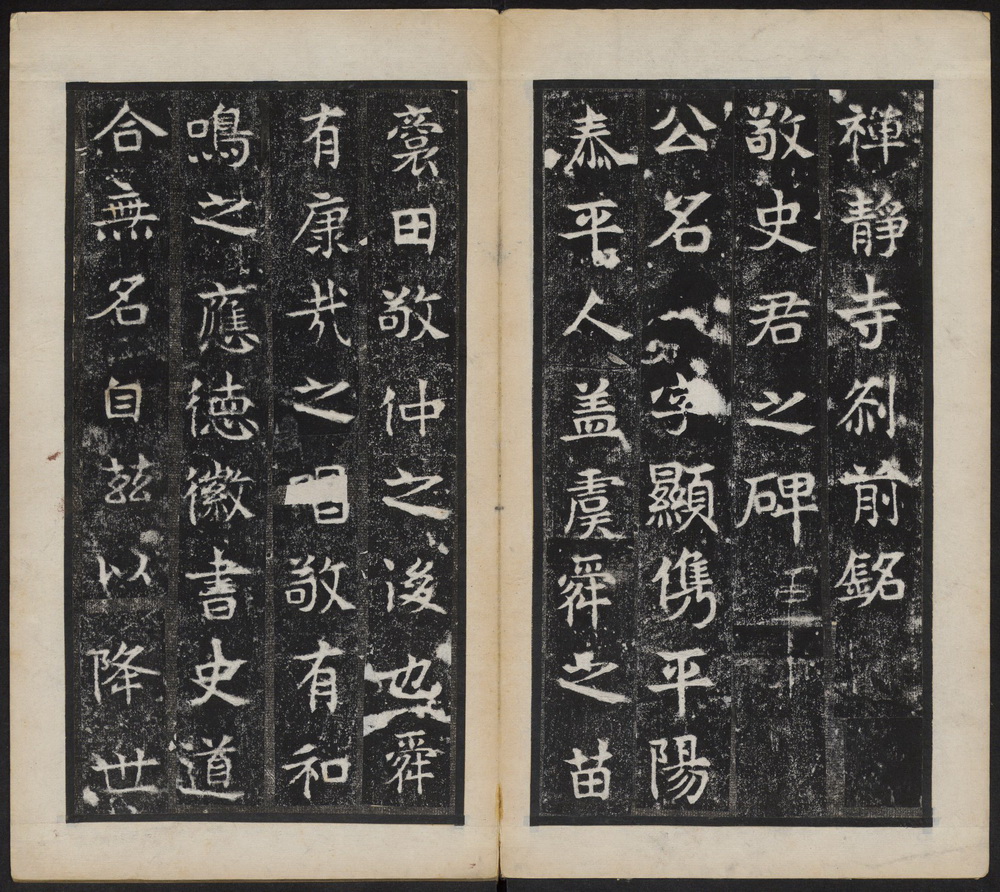 禅靜寺剎前銘
敬史君之碑
公名字顯儁平陽
泰平人盖虞舜之苗
裔田敬仲之後也舜
有康哉之唱敬有和
鳴之應德徽書史道
合無名自茲以降世